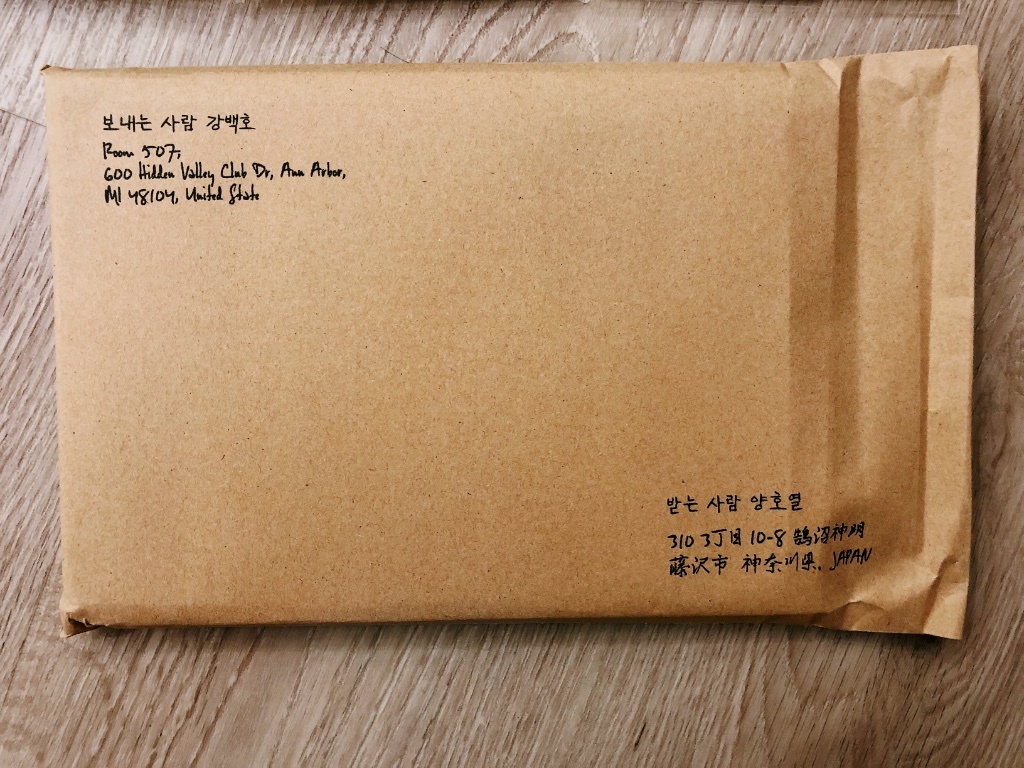 보내는 사람 강백호
Room 507,
600 Hidden Valley Club Dr, Ann Arbor,
MI 48104, United State
받는 사람 양호열
310 3丁目 10-8 鵠沼神明
藤沢市 神奈川県, JAPAN